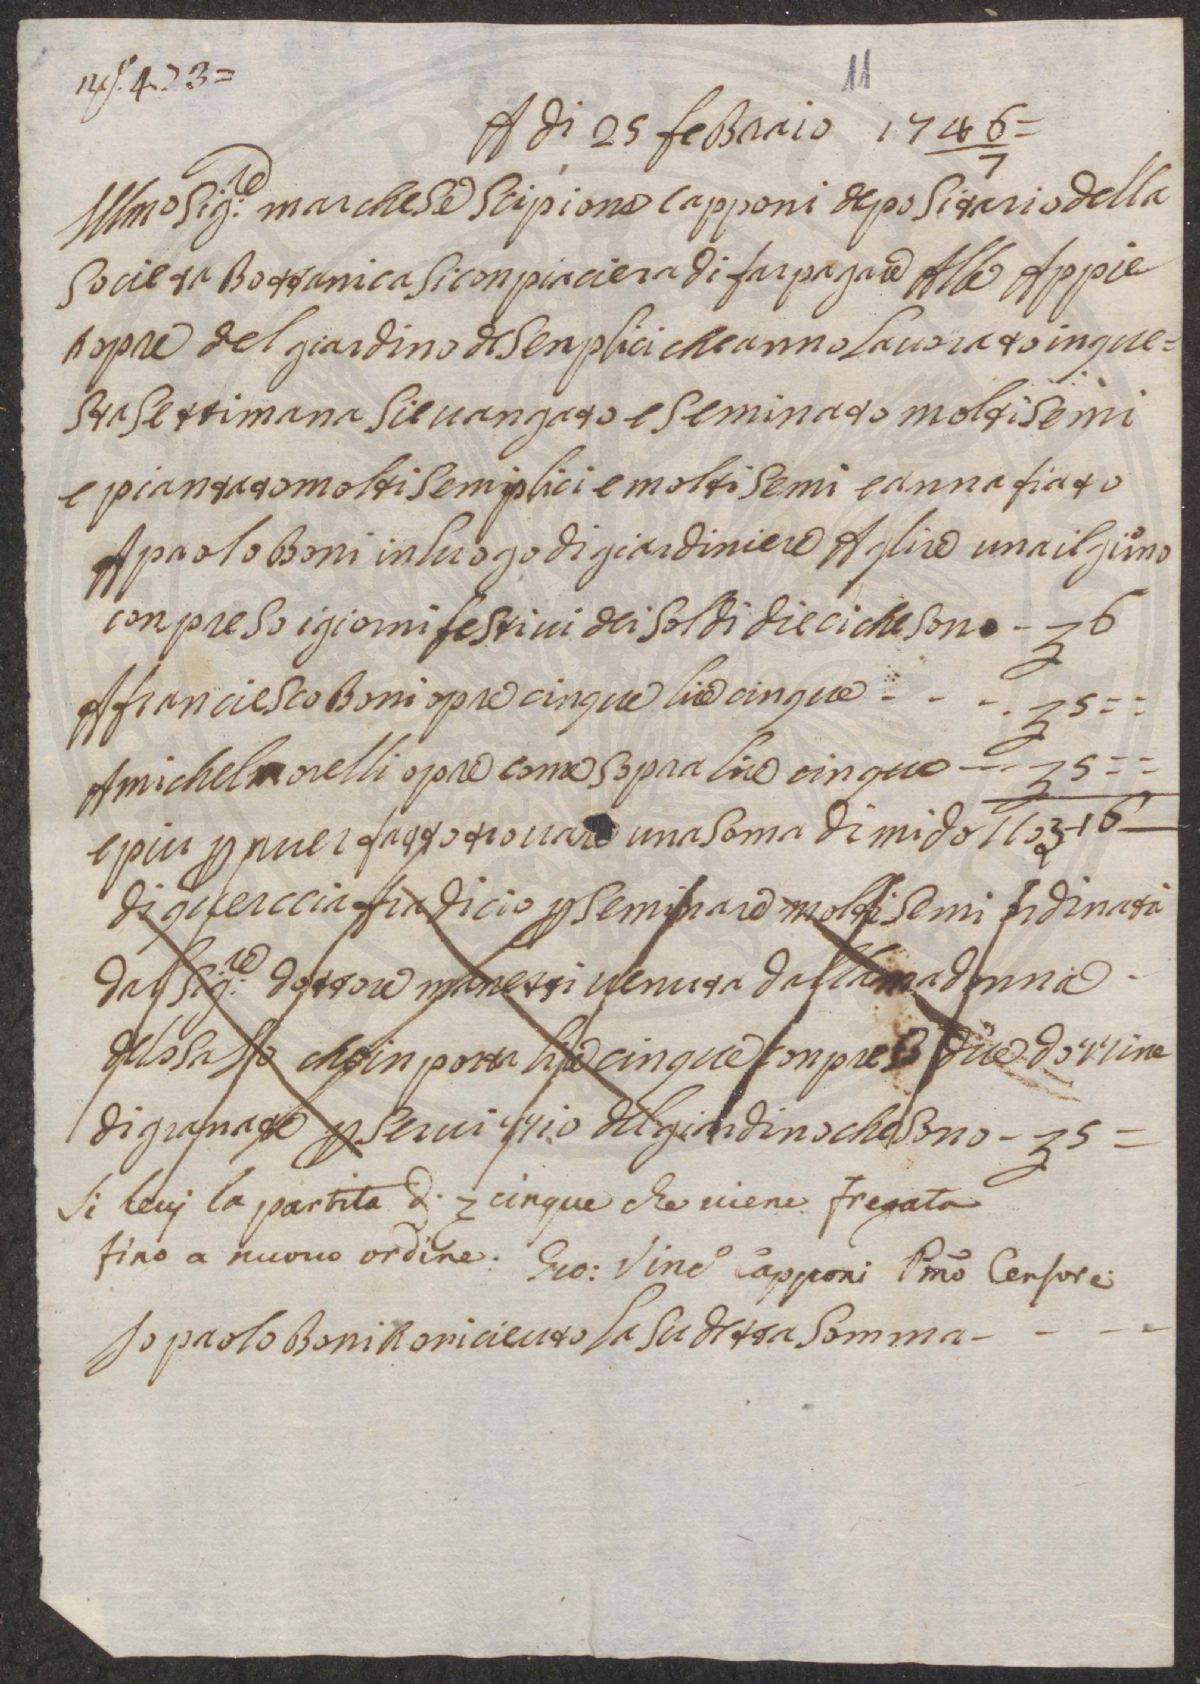 11
A di 25 feBraio 1746=
7
Illmo Sig:re marchese Scipione Capponi depositario della
Societa Bottanica Siconpiaciera di far pagare Alle Appie
hopre del giardino de Senplici che anno Lauorato in que=
sta Settimana Sie uangato e Seminato molti Semi
e piantato molti Semplici e molti Semi e annafiato
A paolo Boni in luogo di giardiniere A glire una il giorno
conpreso i giorni festiui dei Soldi dieci che Sono - 6
A franciesco Boni opre cinque lire cinque - - - 5==
A michel morelli opre come Sopra lire cinque - - 5==
e piu p auer fatto trouare una Soma di midollo 16
di querccia fradicio p Seminare molti Semi ordinata
dal Sig:re dottore manetti uenuta dalla madonna
della sasso che inporta lire cinque conpreso due dozzine
di granate p Seruizzio del giardino che Sono - 5=
Si leuj la partita di cinque che uiene fregata
fino a nuouo ordine. Gio: Vinco Capponi Pmo Censore
Io paolo Boni ho ricieuto la Sudetta Somma - - -